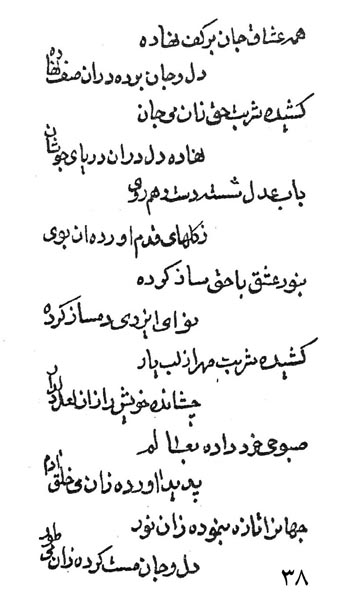 همه عشاق جان بر کف نهاده
دل و جان برده در آن صف نهاده
کشیده شربت حق زان می جان
نهاده دل در آن دریای جوشان
بآب عدل شسته دست و هم روی
ز گلهای قدم آورده آن بوی
بنور عشق با حق ساز کرده
نوای ایزدی دمساز کرده
کشیده شربت مهر از لب یار
چشانده خویش را زان لعل دربار
صبوحی خرد داده بعالم
پدید آورده زان می خلق آدم
جهانرا تازه بنموده زان نور
دل و جان مست کرده زان می طور
۳۸